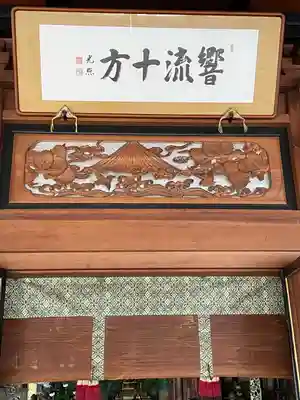 響流十方
光照